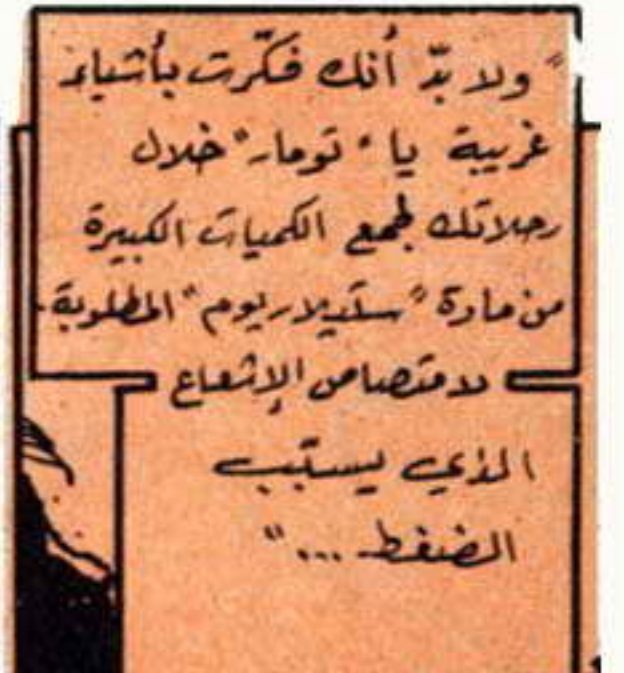 "ولا بدّ أنك فكّرت بأشياء
غريبة يا "تومار" خلال
رحلاتك لجمع الكميات الكبيرة
من مادة "ستيلاريوم" المطلوبة
لامتصاص الإشعاع
الذي يسبّب
الضغط ..."